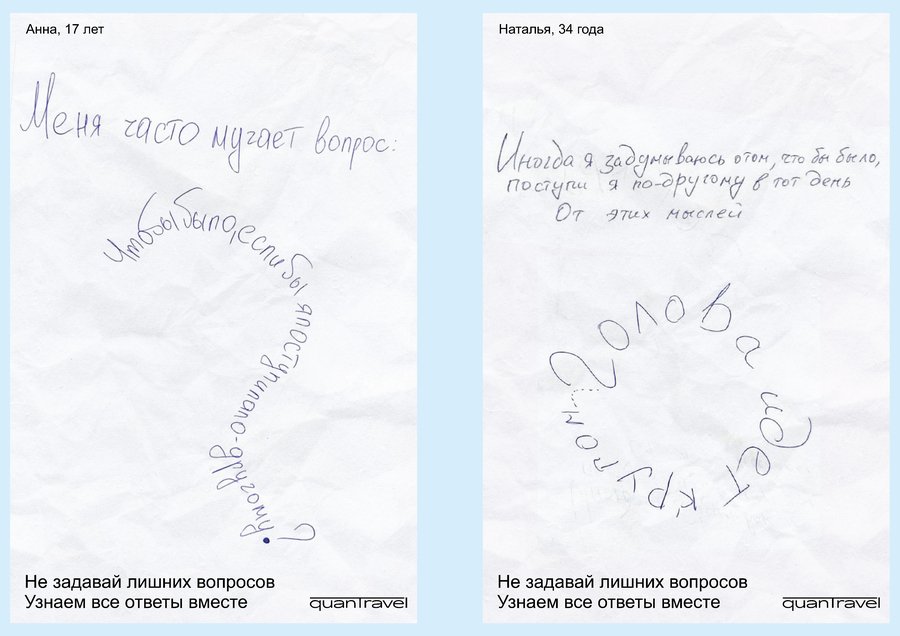 Анна, 17 лет
Меня часто мучает вопрос:
Что бы было, если бы я поступила по-другому
Не задавай лишних вопросов
Узнаем все ответы вместе
quanTravel
Наталья, 34 года
Иногда я задумываюсь о том, что бы было,
поступи я по-другому в тот день
От этих мыслей
голова идет кругом...
Не задавай лишних вопросов
Узнаем все ответы вместе
quanTravel